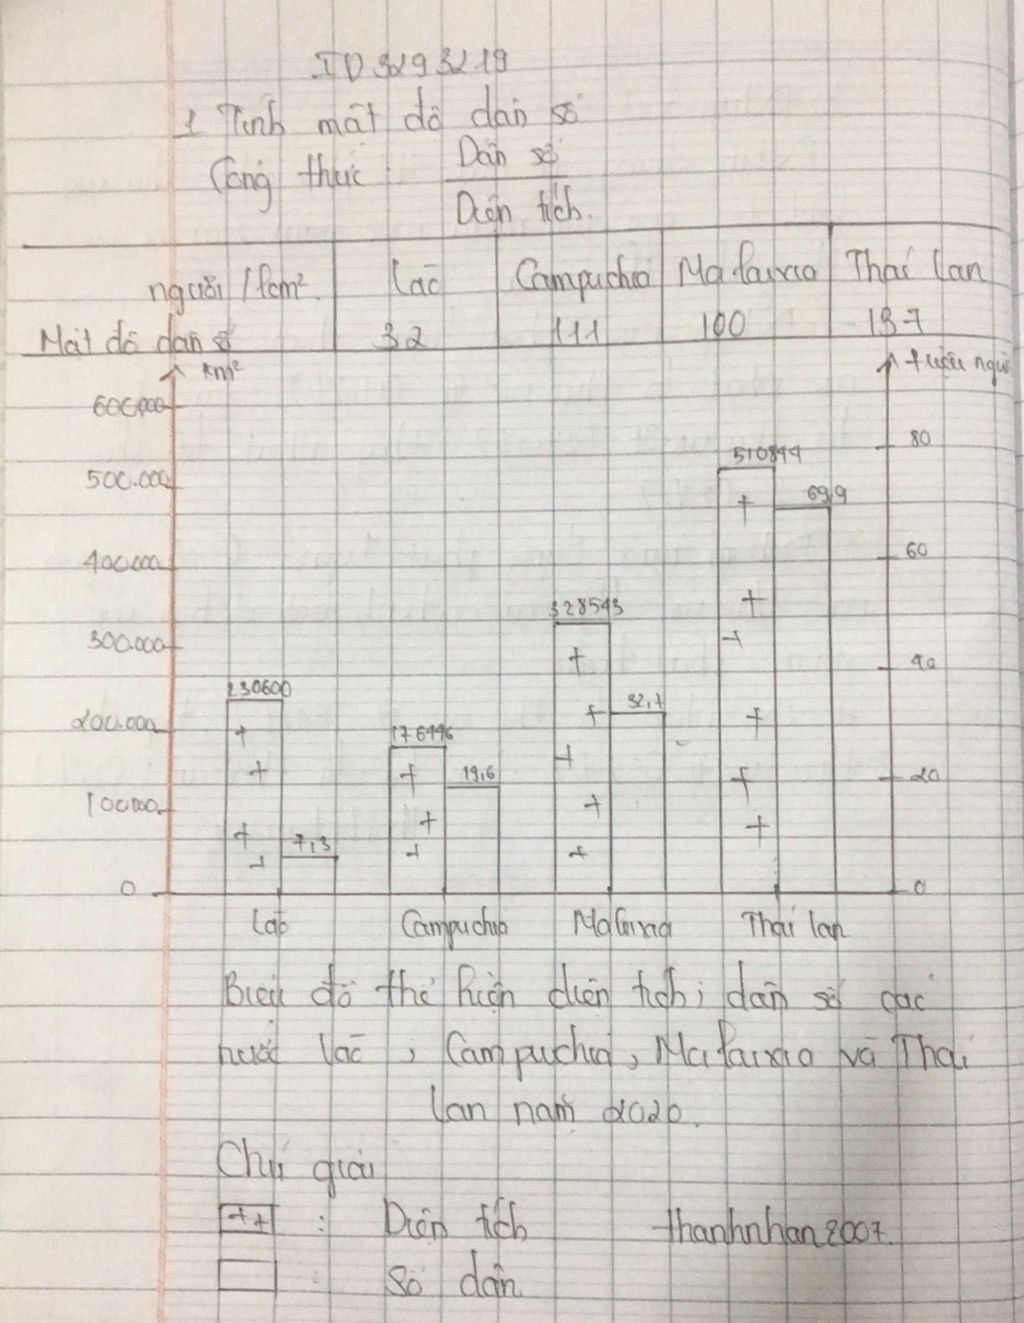 ID 3293219
1 Tính mật độ dân số
Công thức : Dân số
Diện tích.
người /km². Lào Campuchia Malaixia Thái Lan
Mật độ dân số 32 111 100 137
km² triệu người
600.000
80
500.000
510844
69,9
400.000
60
328543
300.000
40
230600
32,7
200.000
176446
19,6
20
100.000
7,3
0 0
Lào Campuchia Malaixia Thái lan
Biểu đồ thể hiện diện tích; dân số các
nước Lào , Campuchia, Malaixia và Thái
lan năm 2020.
Chú giải
++ : Diện tích thanhnhan2007.
: Số dân